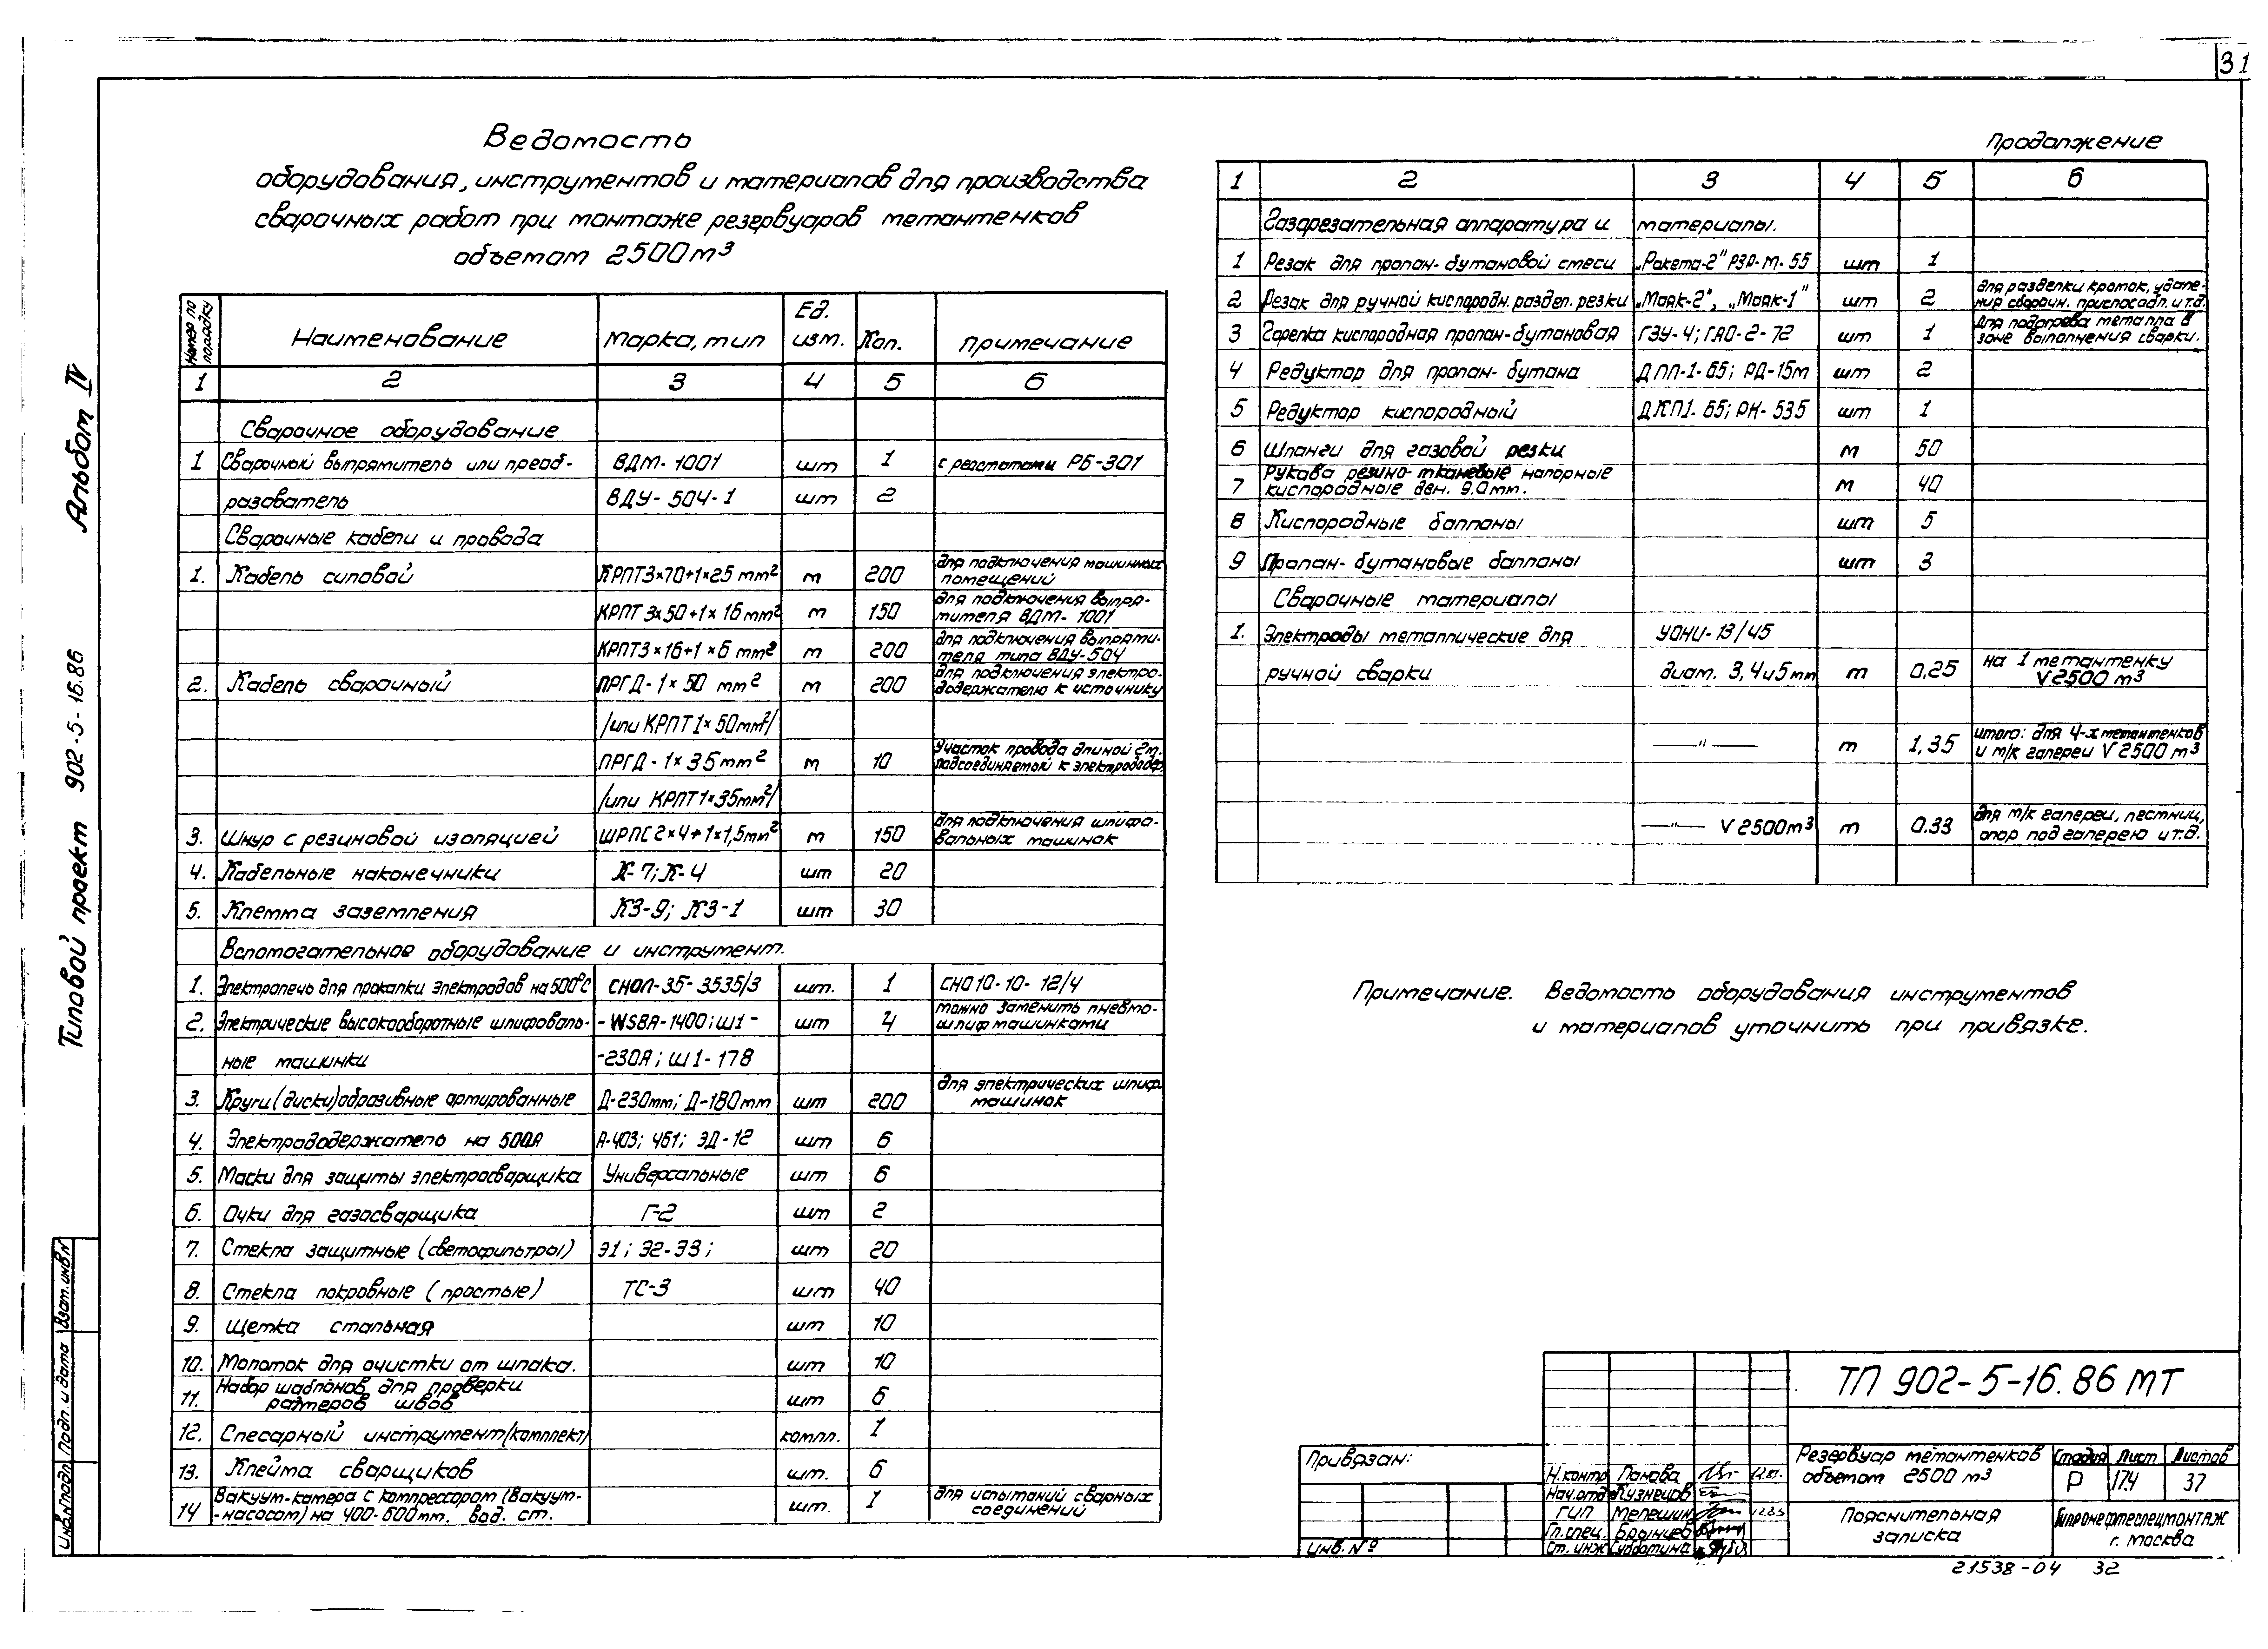 31
Альбом IV
Типовой проект 902-5-16.86
Ведомость
оборудования, инструментов и материалов для производства
сварочных работ при монтаже резервуаров метантенков
объемом 2500 м³
Номер по порядку | Наименование | Марка, тип | Ед. изм. | Кол. | Примечание
1 | 2 | 3 | 4 | 5 | 6
Сварочное оборудование
1 | Сварочный выпрямитель или преоб- | ВДМ-1001 | шт | 1 | с реостатами РБ-301
разователь | ВДУ-504-1 | шт | 2
Сварочные кабели и провода
1. | Кабель силовой | КРПТ3×70+1×25 мм² | м | 200 | для подключения машинных помещений
КРПТ 3×50+1×16 мм² | м | 150 | для подключения выпря-мителя ВДМ-1001
КРПТ3×16+1×6 мм² | м | 200 | для подключения выпрями-теля типа ВДУ-504
2. | Кабель сварочный | ПРГД-1×50 мм² | м | 200 | для подключения электро-додержателю к источнику
/или КРПТ 1×50мм²/
ПРГД-1×35мм² | м | 10 | Участок провода длиной 2м. подсоединяемый к электрододер.
/или КРПТ 1×35мм²/
3. | Шнур с резиновой изоляцией | ШРПС2×4+1×1,5мм² | м | 150 | для подключения шлифо-вальных машинок
4. | Кабельные наконечники | К-7; К-4 | шт | 20
5. | Клемма заземления | КЗ-9; КЗ-1 | шт | 30
Вспомогательное оборудование и инструмент.
1. | Электропечь для прокалки электродов на 500°С | СНОЛ-35-3535/3 | шт. | 1 | СНО10-10-12/4
2. | Электрические высокооборотные шлифоваль- | -WSBA-1400; Ш1- | шт | 4 | можно заменить пневмо-шлифмашинками
ные машинки | -230А; Ш1-178
3. | Круги (диски) образивные армированные | Д-230мм; Д-180мм | шт | 200 | для электрических шлиф. машинок
4. | Электрододержатель на 500А | А-403; 461; ЭД-12 | шт | 6
5. | Маски для защиты электросварщика | Универсальные | шт | 6
6. | Очки для газосварщика | Г-2 | шт | 2
7. | Стекла защитные (светофильтры) | Э1; Э2-ЭЗ; | шт | 20
8. | Стекла покровные (простые) | ТС-3 | шт | 40
9. | Щетка стальная | шт | 10
10. | Молоток для очистки от шлака. | шт | 10
11. | Набор шаблонов для проверки размеров швов | шт | 6
12. | Слесарный инструмент (комплект) | компл. | 1
13. | Клейма сварщиков | шт. | 6
14 | Вакуум-камера с компрессором (вакуум--насосом) на 400-600мм. вод. ст. | шт. | 1 | для испытаний сварных соединений
Продолжение
1 | 2 | 3 | 4 | 5 | 6
Газорезательная аппаратура и материалы.
1 | Резак для пропан-бутановой смеси | „Ракета-2" РЗР-М-55 | шт | 1
2 | Резак для ручной кислородн. раздел. резки | „Маяк-2", „Маяк-1" | шт | 2 | для разделки кромок, удале-ния сварочн. приспособл. и т.д.
3 | Горелка кислородная пропан-бутановая | ГЗУ-4; ГАО-2-72 | шт | 1 | для подогрева металла в зоне выполнения сварки.
4 | Редуктор для пропан-бутана | ДПП-1-65; РД-15м | шт | 2
5 | Редуктор кислородный | ДКП1-65; РК-535 | шт | 1
6 | Шланги для газовой резки | м | 50
7 | Рукава резино-тканевые напорные кислородные двн. 9.0мм. | м | 40
8 | Кислородные баллоны | шт | 5
9 | Пропан-бутановые баллоны | шт | 3
Сварочные материалы
1. | Электроды металлические для | УОНИ-13/45
ручной сварки | диам. 3, 4 и 5 мм | т | 0,25 | на 1 метантенку V 2500 м³
—"— | т | 1,35 | итого: для 4-х метантенков и м/к галереи V 2500 м³
—"— V 2500м³ | т | 0.33 | для м/к галереи, лестниц, опор под галерею и т.д.
Примечание. Ведомость оборудования инструментов
и материалов уточнить при привязке.
Инв.№подл. | Подп. и дата | Взам.инв.№
Привязан:
Инв. №
ТП 902-5-16.86 МТ
Н.контр | Панова | 12.85.
Нач.отд | Кузнецов
ГИП | Мелешин | 12.85
Гл.спец.
Ст. инж | Субботина
Резервуар метантенков
объемом 2500 м³
Стадия | Лист | Листов
Р | 17.4 | 37
Пояснительная
записка
Гипронефтеспецмонтаж
г. Москва
21538-04 32